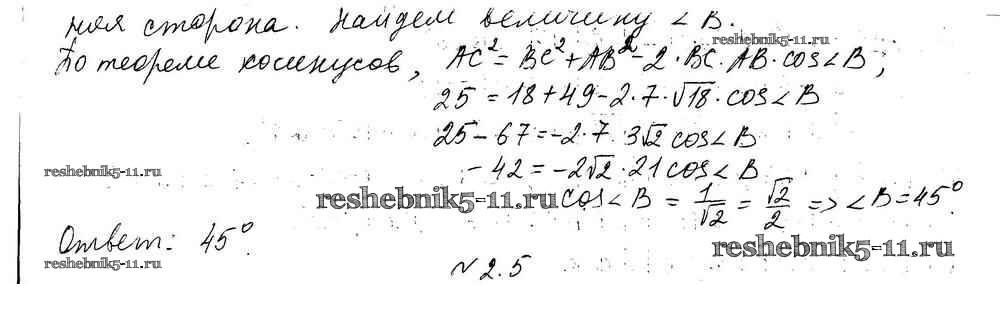 ная сторона. Найдем величину ∠B.
reshebnik5-11.ru
По теореме косинусов, AC² = BC² + AB² - 2·BC·AB·cos∠B;
25 = 18 + 49 - 2·7·√18·cos∠B
25 - 67 = -2·7·3√2 cos∠B
reshebnik5-11.ru
- 42 = -2√2·21 cos∠B
reshebnik5-11.ru
cos∠B = 1/√2 = √2/2 => ∠B = 45°
Ответ: 45°.
reshebnik5-11.ru
reshebnik5-11.ru
№ 2.5